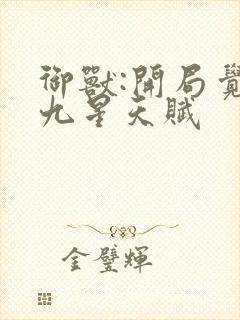 御獸:開局覺
九星天賦
金璧輝